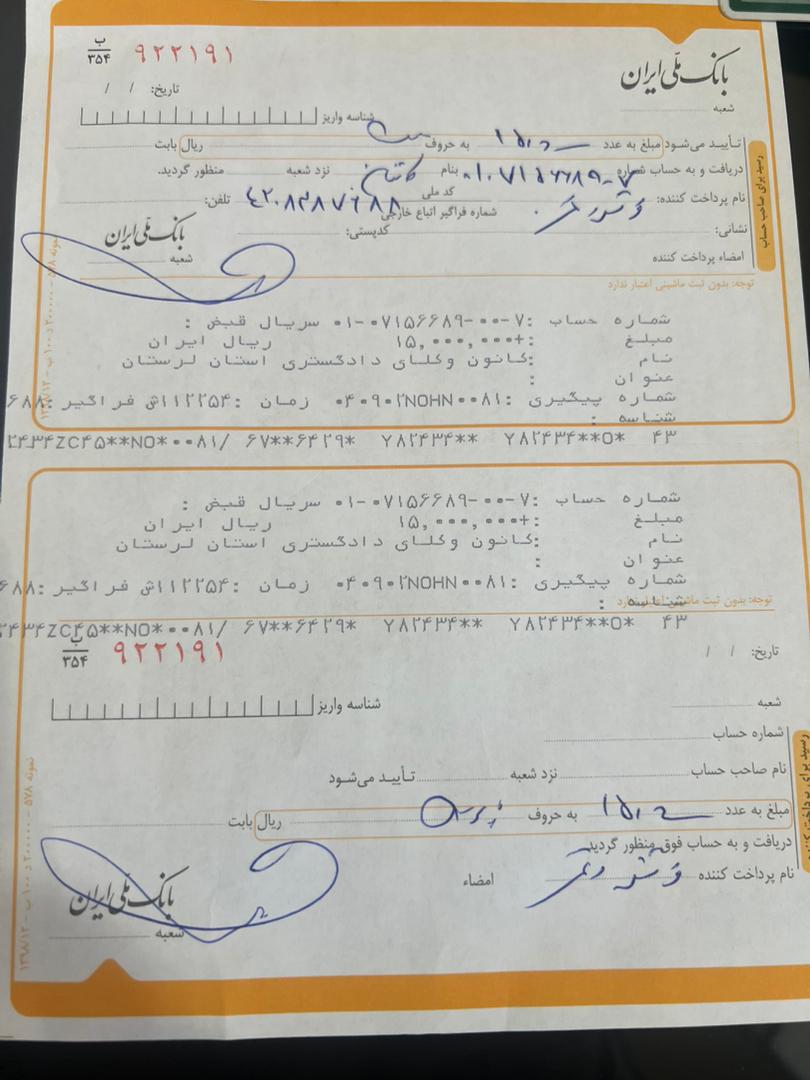 بانک ملی ایران
ب
۳۵۴
۹۲۲۱۹۱
شعبه
تاریخ: / /
شناسه واریز
تأیید می‌شود مبلغ به عدد به حروف ریال بابت
دریافت و به حساب شماره بنام نزد شعبه منظور گردید.
نام پرداخت کننده: کد ملی تلفن:
شماره فراگیر اتباع خارجی
نشانی: کدپستی:
بانک ملی ایران
شعبه
امضاء پرداخت کننده
رسید برای صاحب حساب
توجه: بدون ثبت ماشینی اعتبار ندارد
شماره حساب :۷-۰۰-۰۷۱۵۶۶۸۹-۰۱ سریال قبض :
مبلغ :+۱۵,۰۰۰,۰۰۰ ریال ایران
نام :کانون وکلای دادگستری استان لرستان
عنوان :
شماره پیگیری :۰۴۰۹۰۲NOHN۰۰۸۱ زمان :۱۱۲۲۵۴ش فراگیر :۶۸۸
شناسه :
۲۴۳۴ZC۴۵**NO*۰۰۸۱/ ۶۷**۶۴۲۹* Y۸۲۴۳۴** Y۸۲۴۳۴**O* ۴۳
شماره حساب :۷-۰۰-۰۷۱۵۶۶۸۹-۰۱ سریال قبض :
مبلغ :+۱۵,۰۰۰,۰۰۰ ریال ایران
نام :کانون وکلای دادگستری استان لرستان
عنوان :
شماره پیگیری :۰۴۰۹۰۲NOHN۰۰۸۱ زمان :۱۱۲۲۵۴ش فراگیر :۶۸۸
شناسه :
توجه: بدون ثبت ماشینی اعتبار ندارد
۲۴۳۴ZC۴۵**NO*۰۰۸۱/ ۶۷**۶۴۲۹* Y۸۲۴۳۴** Y۸۲۴۳۴**O* ۴۳
ب
۳۵۴
۹۲۲۱۹۱
تاریخ: / /
شعبه
شناسه واریز
شماره حساب
نام صاحب حساب نزد شعبه تأیید می‌شود
مبلغ به عدد به حروف ریال بابت
دریافت و به حساب فوق منظور گردید
نام پرداخت کننده امضاء
بانک ملی ایران
شعبه